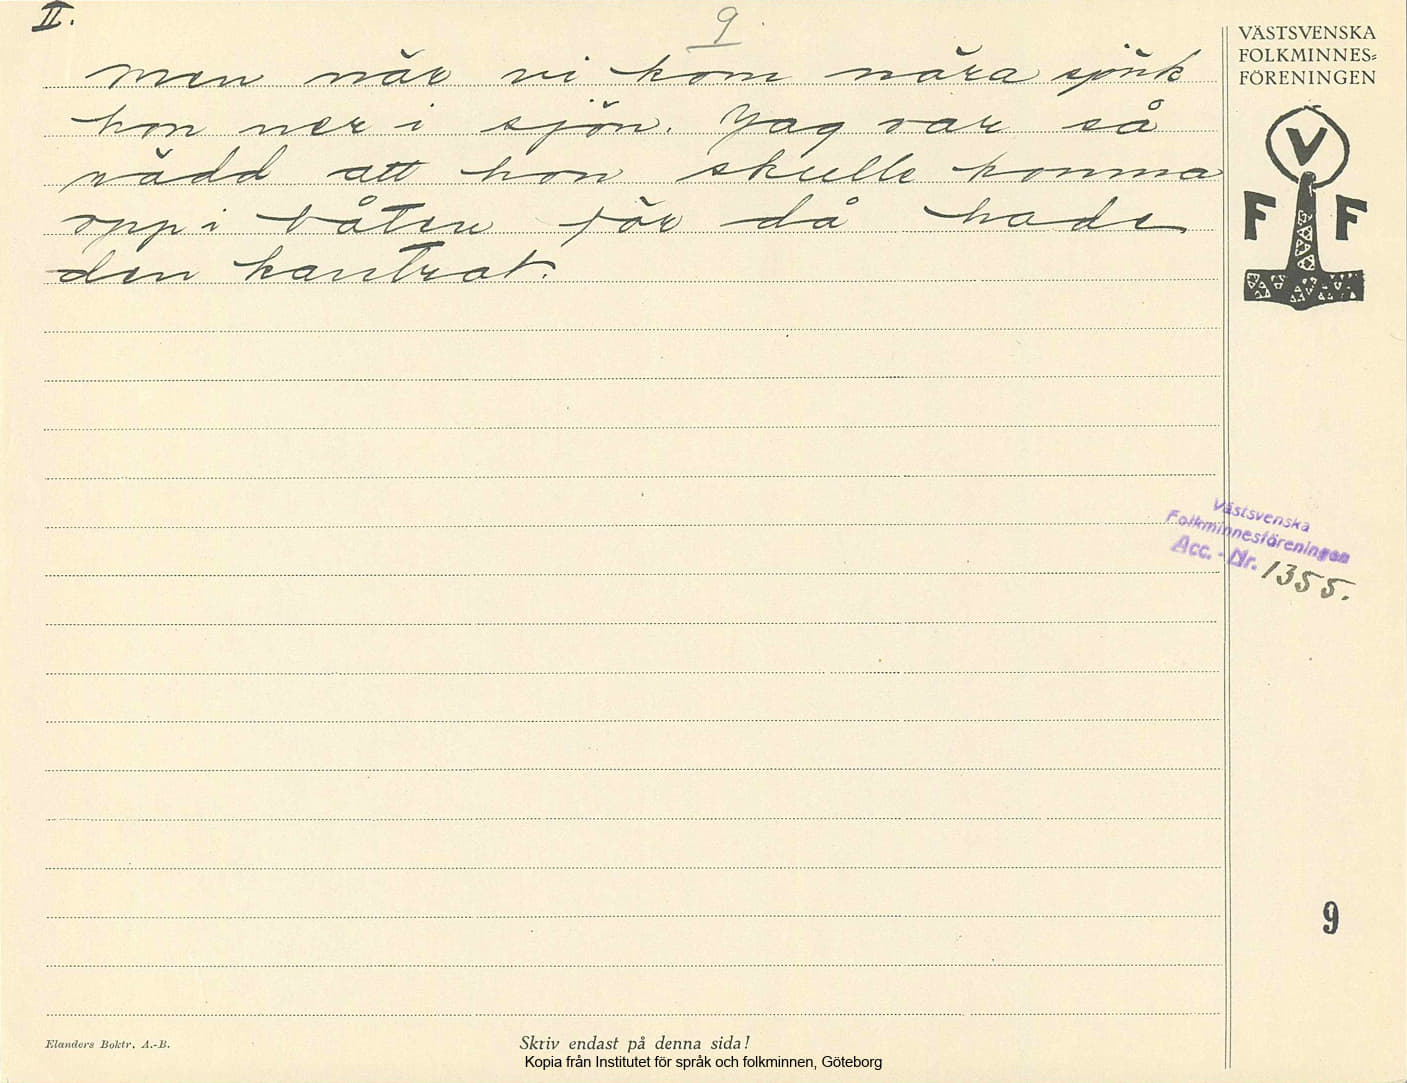 II.
9
VÄSTSVENSKA
FOLKMINNES=
FÖRENINGEN
V
F F
men när vi kom nära sjönk
hon ner i sjön. Jag var så
rädd att hon skulle komma
opp i båten för då hade
den kantrat.
Västsvenska
Folkminnesföreningen
Acc. - Nr. 1355.
9
Elanders Boktr. A.-B.
Skriv endast på denna sida!
Kopia från Institutet för språk och folkminnen, Göteborg